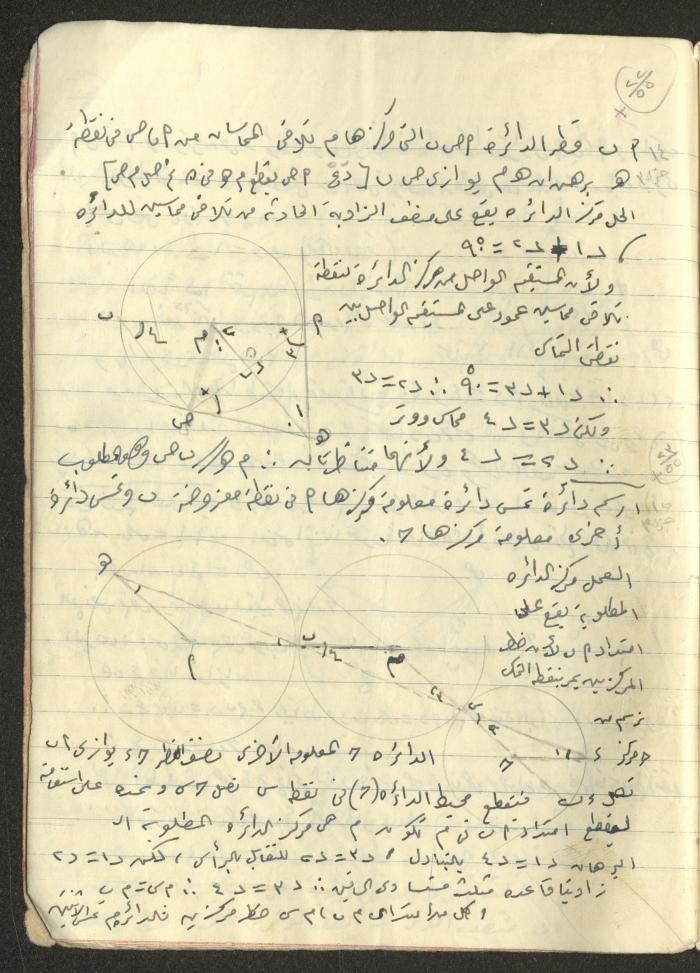 ٢ ب قطر الدائرة ٢ ص ب التى مركزها م تلاقى المماسان من ٢ ، ص فى نقطة
ه برهن ان ه م يوازى ص ب ٢ ص يقطع م ه فى
الحل مركز الدائرة يقع على منصف الزاوية الحادثة من تلاقى مماسين للدائرة
د ١ + د ٢ = ٩٠°
ولأن المستقيم الواصل من مركز الدائرة لنقطة
تلاقى مماسين عمود على المستقيم الواصل بين
نقطتى التماس
∴ د ١ + د ٣ = ٩٠° ∴ د ٢ = د ٣
ولكن د ٣ = د ٤ مماس ووتر
∴ د ٢ = د ٤ ولأنهما متناظرتان ∴ م ه // ب ص وهو المطلوب
ارسم دائرة تمس دائرة معلومة مركزها ٢ فى نقطة مفروضة ب وتمس دائرة
أخرى معلومة مركزها ح .
العمل مركز الدائرة
المطلوبة يقع على
امتداد ٢ ب لأن خط
المركزين يمر بنقطة التماس
نرسم من
ح مركز
الدائرة ح المعلومة الأخرى نصف القطر ح ء يوازى ٢ ب
نصل ء ب فيقطع محيط الدائرة (ح) فى نقطة س نصل ح س ونمده على استقامته
ليقطع امتداد ٢ ب فى م تكون م هى مركز الدائرة المطلوبة
البرهان د ١ = د ٤ بالتبادل ، د ٣ = د ٢ للتقابل بالرأس ، لكن د ١ = د ٢
زاويتا قاعدة مثلث متساوى الساقين ∴ د ٣ = د ٤ ∴ م س = م ب